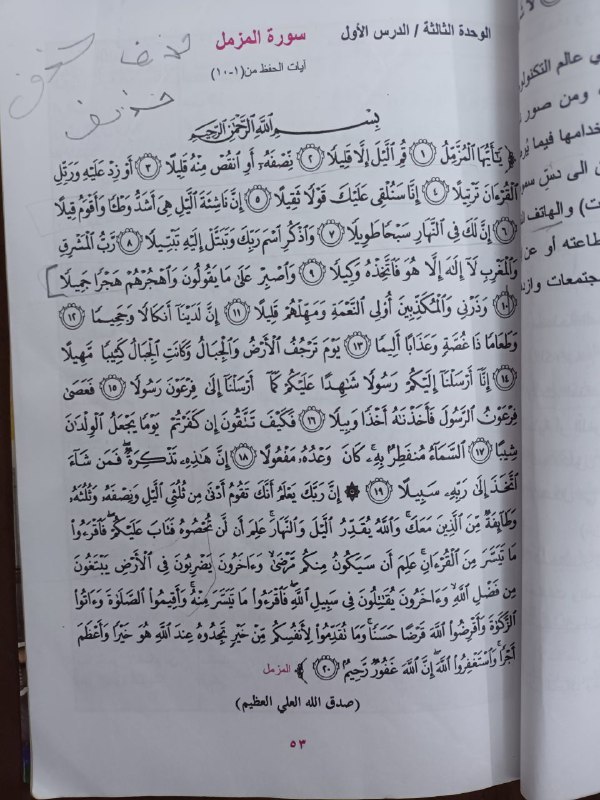 الوحدة الثالثة / الدرس الأول
سورة المزمل
آيات الحفظ من(١-١٠)
بِسْمِ ٱللَّهِ ٱلرَّحْمَٰنِ ٱلرَّحِيمِ
﴿ يَٰٓأَيُّهَا ٱلْمُزَّمِّلُ ١ قُمِ ٱلَّيْلَ إِلَّا قَلِيلًا ٢ نِّصْفَهُۥٓ أَوِ ٱنقُصْ مِنْهُ قَلِيلًا ٣ أَوْ زِدْ عَلَيْهِ وَرَتِّلِ
ٱلْقُرْءَانَ تَرْتِيلًا ٤ إِنَّا سَنُلْقِى عَلَيْكَ قَوْلًا ثَقِيلًا ٥ إِنَّ نَاشِئَةَ ٱلَّيْلِ هِىَ أَشَدُّ وَطْـًٔا وَأَقْوَمُ قِيلًا
٦ إِنَّ لَكَ فِى ٱلنَّهَارِ سَبْحًا طَوِيلًا ٧ وَٱذْكُرِ ٱسْمَ رَبِّكَ وَتَبَتَّلْ إِلَيْهِ تَبْتِيلًا ٨ رَّبُّ ٱلْمَشْرِقِ
وَٱلْمَغْرِبِ لَآ إِلَٰهَ إِلَّا هُوَ فَٱتَّخِذْهُ وَكِيلًا ٩ وَٱصْبِرْ عَلَىٰ مَا يَقُولُونَ وَٱهْجُرْهُمْ هَجْرًا جَمِيلًا
١٠ وَذَرْنِى وَٱلْمُكَذِّبِينَ أُو۟لِى ٱلنَّعْمَةِ وَمَهِّلْهُمْ قَلِيلًا ١١ إِنَّ لَدَيْنَآ أَنكَالًا وَجَحِيمًا ١٢
وَطَعَامًا ذَا غُصَّةٍ وَعَذَابًا أَلِيمًا ١٣ يَوْمَ تَرْجُفُ ٱلْأَرْضُ وَٱلْجِبَالُ وَكَانَتِ ٱلْجِبَالُ كَثِيبًا مَّهِيلًا
١٤ إِنَّآ أَرْسَلْنَآ إِلَيْكُمْ رَسُولًا شَٰهِدًا عَلَيْكُمْ كَمَآ أَرْسَلْنَآ إِلَىٰ فِرْعَوْنَ رَسُولًا ١٥ فَعَصَىٰ
فِرْعَوْنُ ٱلرَّسُولَ فَأَخَذْنَٰهُ أَخْذًا وَبِيلًا ١٦ فَكَيْفَ تَتَّقُونَ إِن كَفَرْتُمْ يَوْمًا يَجْعَلُ ٱلْوِلْدَٰنَ
شِيبًا ١٧ ٱلسَّمَآءُ مُنفَطِرٌۢ بِهِۦ ۚ كَانَ وَعْدُهُۥ مَفْعُولًا ١٨ إِنَّ هَٰذِهِۦ تَذْكِرَةٌ ۖ فَمَن شَآءَ
ٱتَّخَذَ إِلَىٰ رَبِّهِۦ سَبِيلًا ١٩ ۞ إِنَّ رَبَّكَ يَعْلَمُ أَنَّكَ تَقُومُ أَدْنَىٰ مِن ثُلُثَىِ ٱلَّيْلِ وَنِصْفَهُۥ وَثُلُثَهُۥ
وَطَآئِفَةٌ مِّنَ ٱلَّذِينَ مَعَكَ ۚ وَٱللَّهُ يُقَدِّرُ ٱلَّيْلَ وَٱلنَّهَارَ ۚ عَلِمَ أَن لَّن تُحْصُوهُ فَتَابَ عَلَيْكُمْ ۖ فَٱقْرَءُوا۟
مَا تَيَسَّرَ مِنَ ٱلْقُرْءَانِ ۚ عَلِمَ أَن سَيَكُونُ مِنكُم مَّرْضَىٰ ۙ وَءَاخَرُونَ يَضْرِبُونَ فِى ٱلْأَرْضِ يَبْتَغُونَ
مِن فَضْلِ ٱللَّهِ ۙ وَءَاخَرُونَ يُقَٰتِلُونَ فِى سَبِيلِ ٱللَّهِ ۖ فَٱقْرَءُوا۟ مَا تَيَسَّرَ مِنْهُ ۚ وَأَقِيمُوا۟ ٱلصَّلَوٰةَ وَءَاتُوا۟
ٱلزَّكَوٰةَ وَأَقْرِضُوا۟ ٱللَّهَ قَرْضًا حَسَنًا ۚ وَمَا تُقَدِّمُوا۟ لِأَنفُسِكُم مِّنْ خَيْرٍ تَجِدُوهُ عِندَ ٱللَّهِ هُوَ خَيْرًا وَأَعْظَمَ
أَجْرًا ۚ وَٱسْتَغْفِرُوا۟ ٱللَّهَ ۖ إِنَّ ٱللَّهَ غَفُورٌ رَّحِيمٌۢ ٢٠ ﴾ المزمل
(صدق الله العلي العظيم)
٥٣
ي عالم التكنولو
ومن صور
خدامها فيما
الى دس
ت) والهاتف
طاعته أو عن
جتمعات